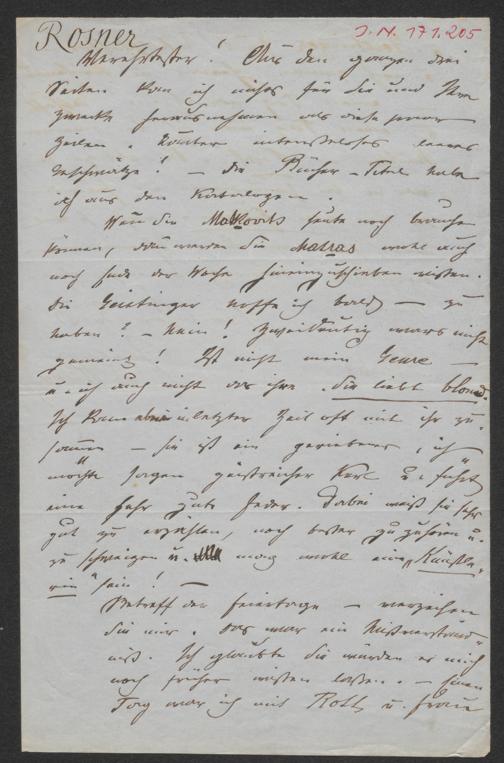 Rosner
J. N. 171.205
Verehrtester! Aus den ganzen drei
Seiten kann ich nichts für Sie und Ihre
Zwecke herausnehmen als diese paar
Zeilen. Lauter interesseloses leeres
Geschwätze! — Die Bücher-Titel habe
ich aus den Katalogen.
Wenn Sie Matkovits heute noch brauchen
können, dann werden Sie Matras wohl auch
noch Ende der Woche hineinzuschieben wissen.
Die Geistinger hoffe ich bald — zu
haben? — Nein! Zweideutig war's nicht
gemeint! Ist nicht mein Genre —
u. ich auch nicht das ihre. Sie liebt blond.
Ich kam in letzter Zeit oft mit ihr zu-
sammen — sie ist ein geriebener, ich
möchte sagen geistreicher Kerl u. führt
eine sehr gute Feder. Dabei weiß sie sehr
gut zu erzählen, noch besser zuzuhören u.
zu schweigen u. mag wohl eine "Künstle-
rin" sein! —
Betreff der Feiertage — verzeihen
Sie mir. Das war ein Mißverständ-
niß. Ich glaubte Sie würden es mich
noch früher wissen lassen. — Einen
Tag war ich mit Roth u. Frau